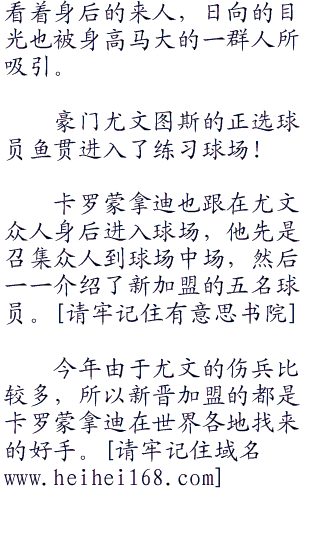 看着身后的来人，日向的目
光也被身高马大的一群人所
吸引。
豪门尤文图斯的正选球
员鱼贯进入了练习球场！
卡罗蒙拿迪也跟在尤文
众人身后进入球场，他先是
召集众人到球场中场，然后
一一介绍了新加盟的五名球
员。[请牢记住有意思书院]
今年由于尤文的伤兵比
较多，所以新晋加盟的都是
卡罗蒙拿迪在世界各地找来
的好手。[请牢记住域名
www.heihei168.com]